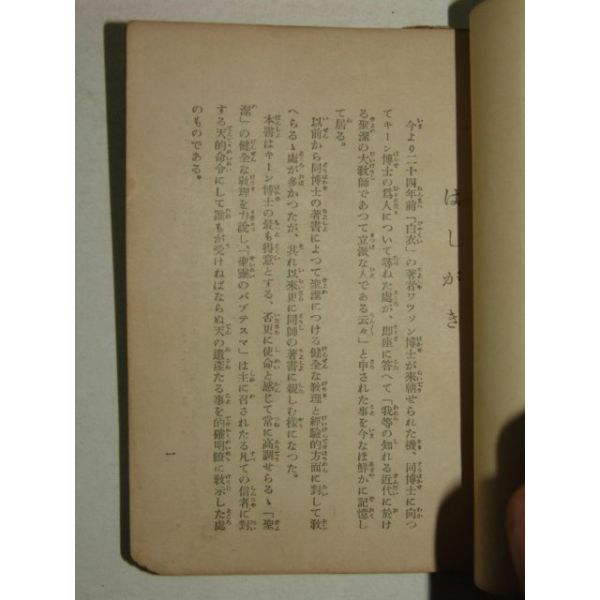 はしがき
今より二十四年前「白衣」の著者ワツソン博士が來朝せられた機、同博士に向つ
てキーン博士の爲人について尋ねた處が、即座に答へて「我等の知れる近代に於け
る聖潔の大敎師であつて立派な人である云々」と申された事を今なほ鮮かに記憶し
て居る。
以前から同博士の著書によつて聖潔につける健全な敎理と經驗的方面に對して敎
へらるゝ處が多かつたが、其れ以來更に同師の著書に親しむ樣になつた。
本書はキーン博士の最も得意とする、否更に使命と感じて常に高調せらるゝ「聖
潔」の健全な敎理を力說し、「聖靈のバプテスマ」は主に召されたる凡ての信者に對
する天的命令にして誰もが受けねばならぬ天の遺產たる事を的確明瞭に敎示した處
のものである。
一